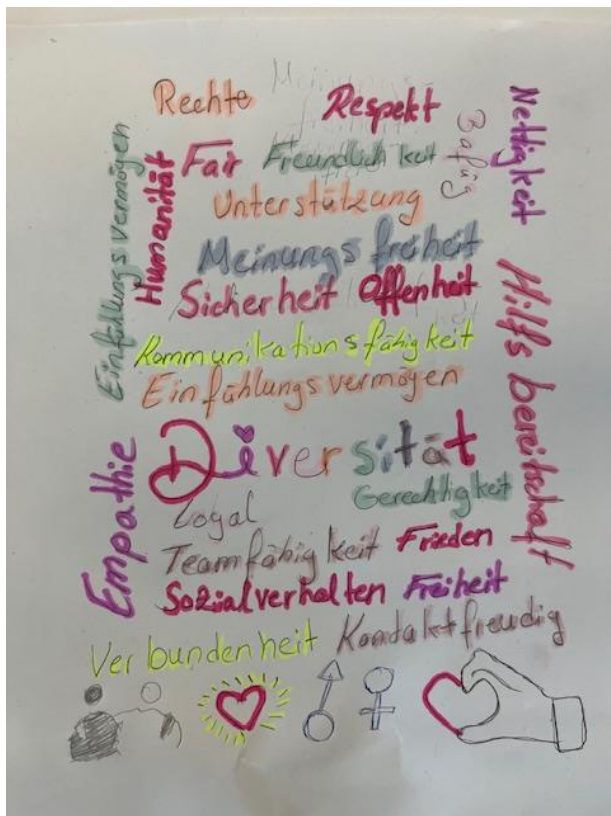 Rechte
Respekt
Nettigkeit
Einfühlungsvermögen
Humanität
Fair Freundlichkeit
Unterstützung
Meinungsfreiheit
Sicherheit Offenheit
Hilfsbereitschaft
Kommunikationsfähigkeit
Einfühlungsvermögen
Empathie
Diversität
Gerechtigkeit
Loyal
Teamfähigkeit Frieden
Sozialverhalten Freiheit
Verbundenheit Kondaktfreudig